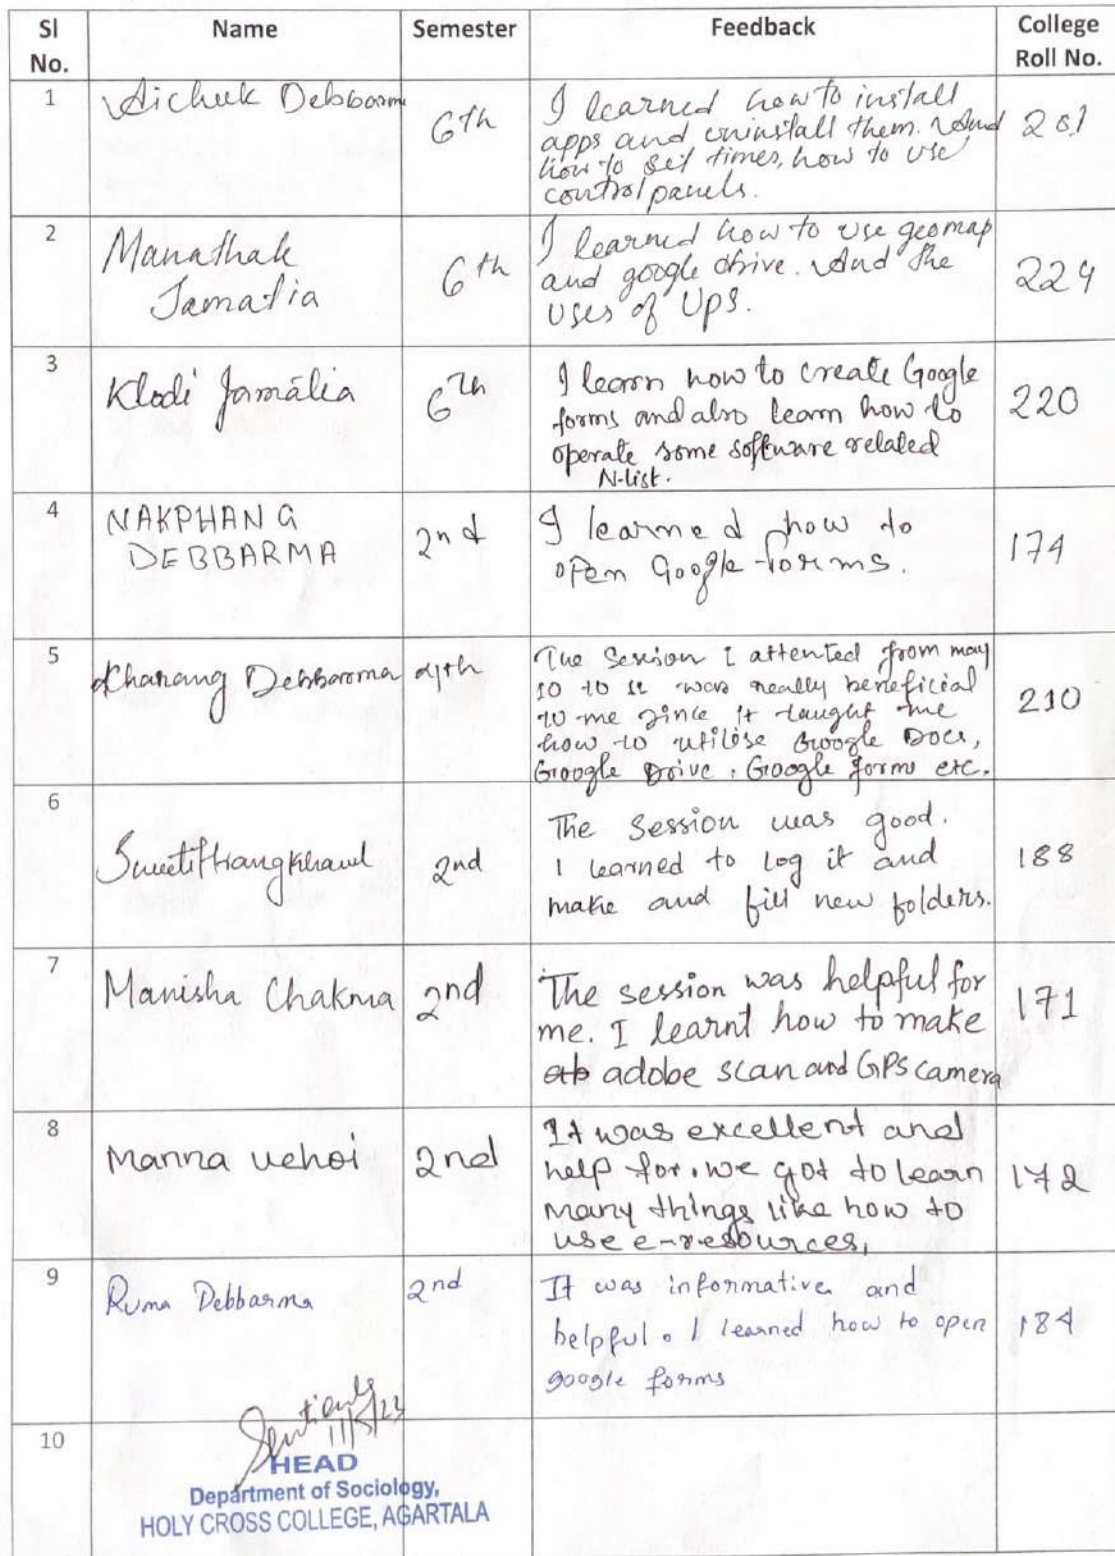 Sl No. Name Semester Feedback College Roll No.
1 Aichuk Debbarma 6th I learned how to install
apps and uninstall them. And
how to set times, how to use
control panels. 201
2 Manathak
Jamatia 6th I learned how to use geomap
and google drive. And the
uses of Ups. 224
3 Klodi Jamatia 6th I learn how to create Google
forms and also learn how to
operate some software related
N-list. 220
4 NAKPHANG
DEBBARMA 2nd I learned how to
open Google forms. 174
5 Kharang Debbarma 4th The Session I attented from may
10 to 12 was really beneficial
to me since it taught me
how to utilise Google Docs,
Google Drive, Google forms etc. 210
6 2nd The session was good.
I learned to log it and
make and fill new folders. 188
7 Manisha Chakma 2nd The session was helpful for
me. I learnt how to make
adobe scan and GPS camera 171
8 Manna uchoi 2nd It was excellent and
help for. we got to learn
many things like how to
use e-resources, 172
9 Ruma Debbarma 2nd It was informative and
helpful. I learned how to open
google forms 184
10
11/5/23
HEAD
Department of Sociology,
HOLY CROSS COLLEGE, AGARTALA